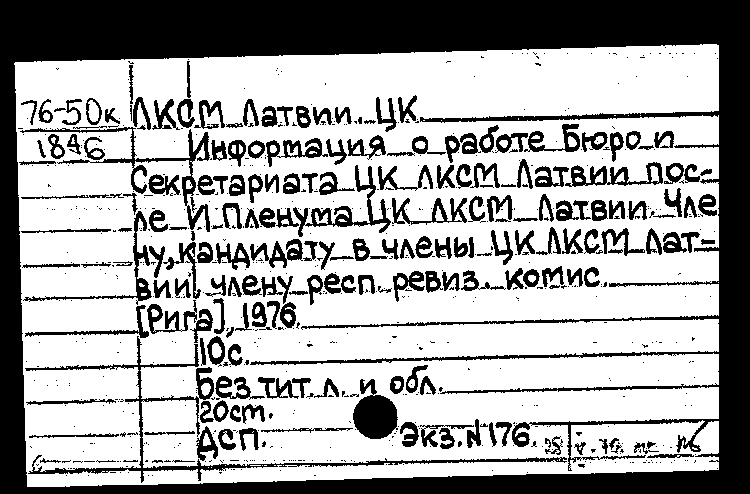 76-50к ЛКСМ Латвии. ЦК.
1846 Информация о работе Бюро и
Секретариата ЦК ЛКСМ Латвии пос-
ле II Пленума ЦК ЛКСМ Латвии. Чле
ну, кандидату в члены ЦК ЛКСМ Лат-
вии, члену респ. ревиз. комис.
[Рига], 1976.
10с.
Без тит. л. и обл.
20ст.
ДСП. Экз. N176.